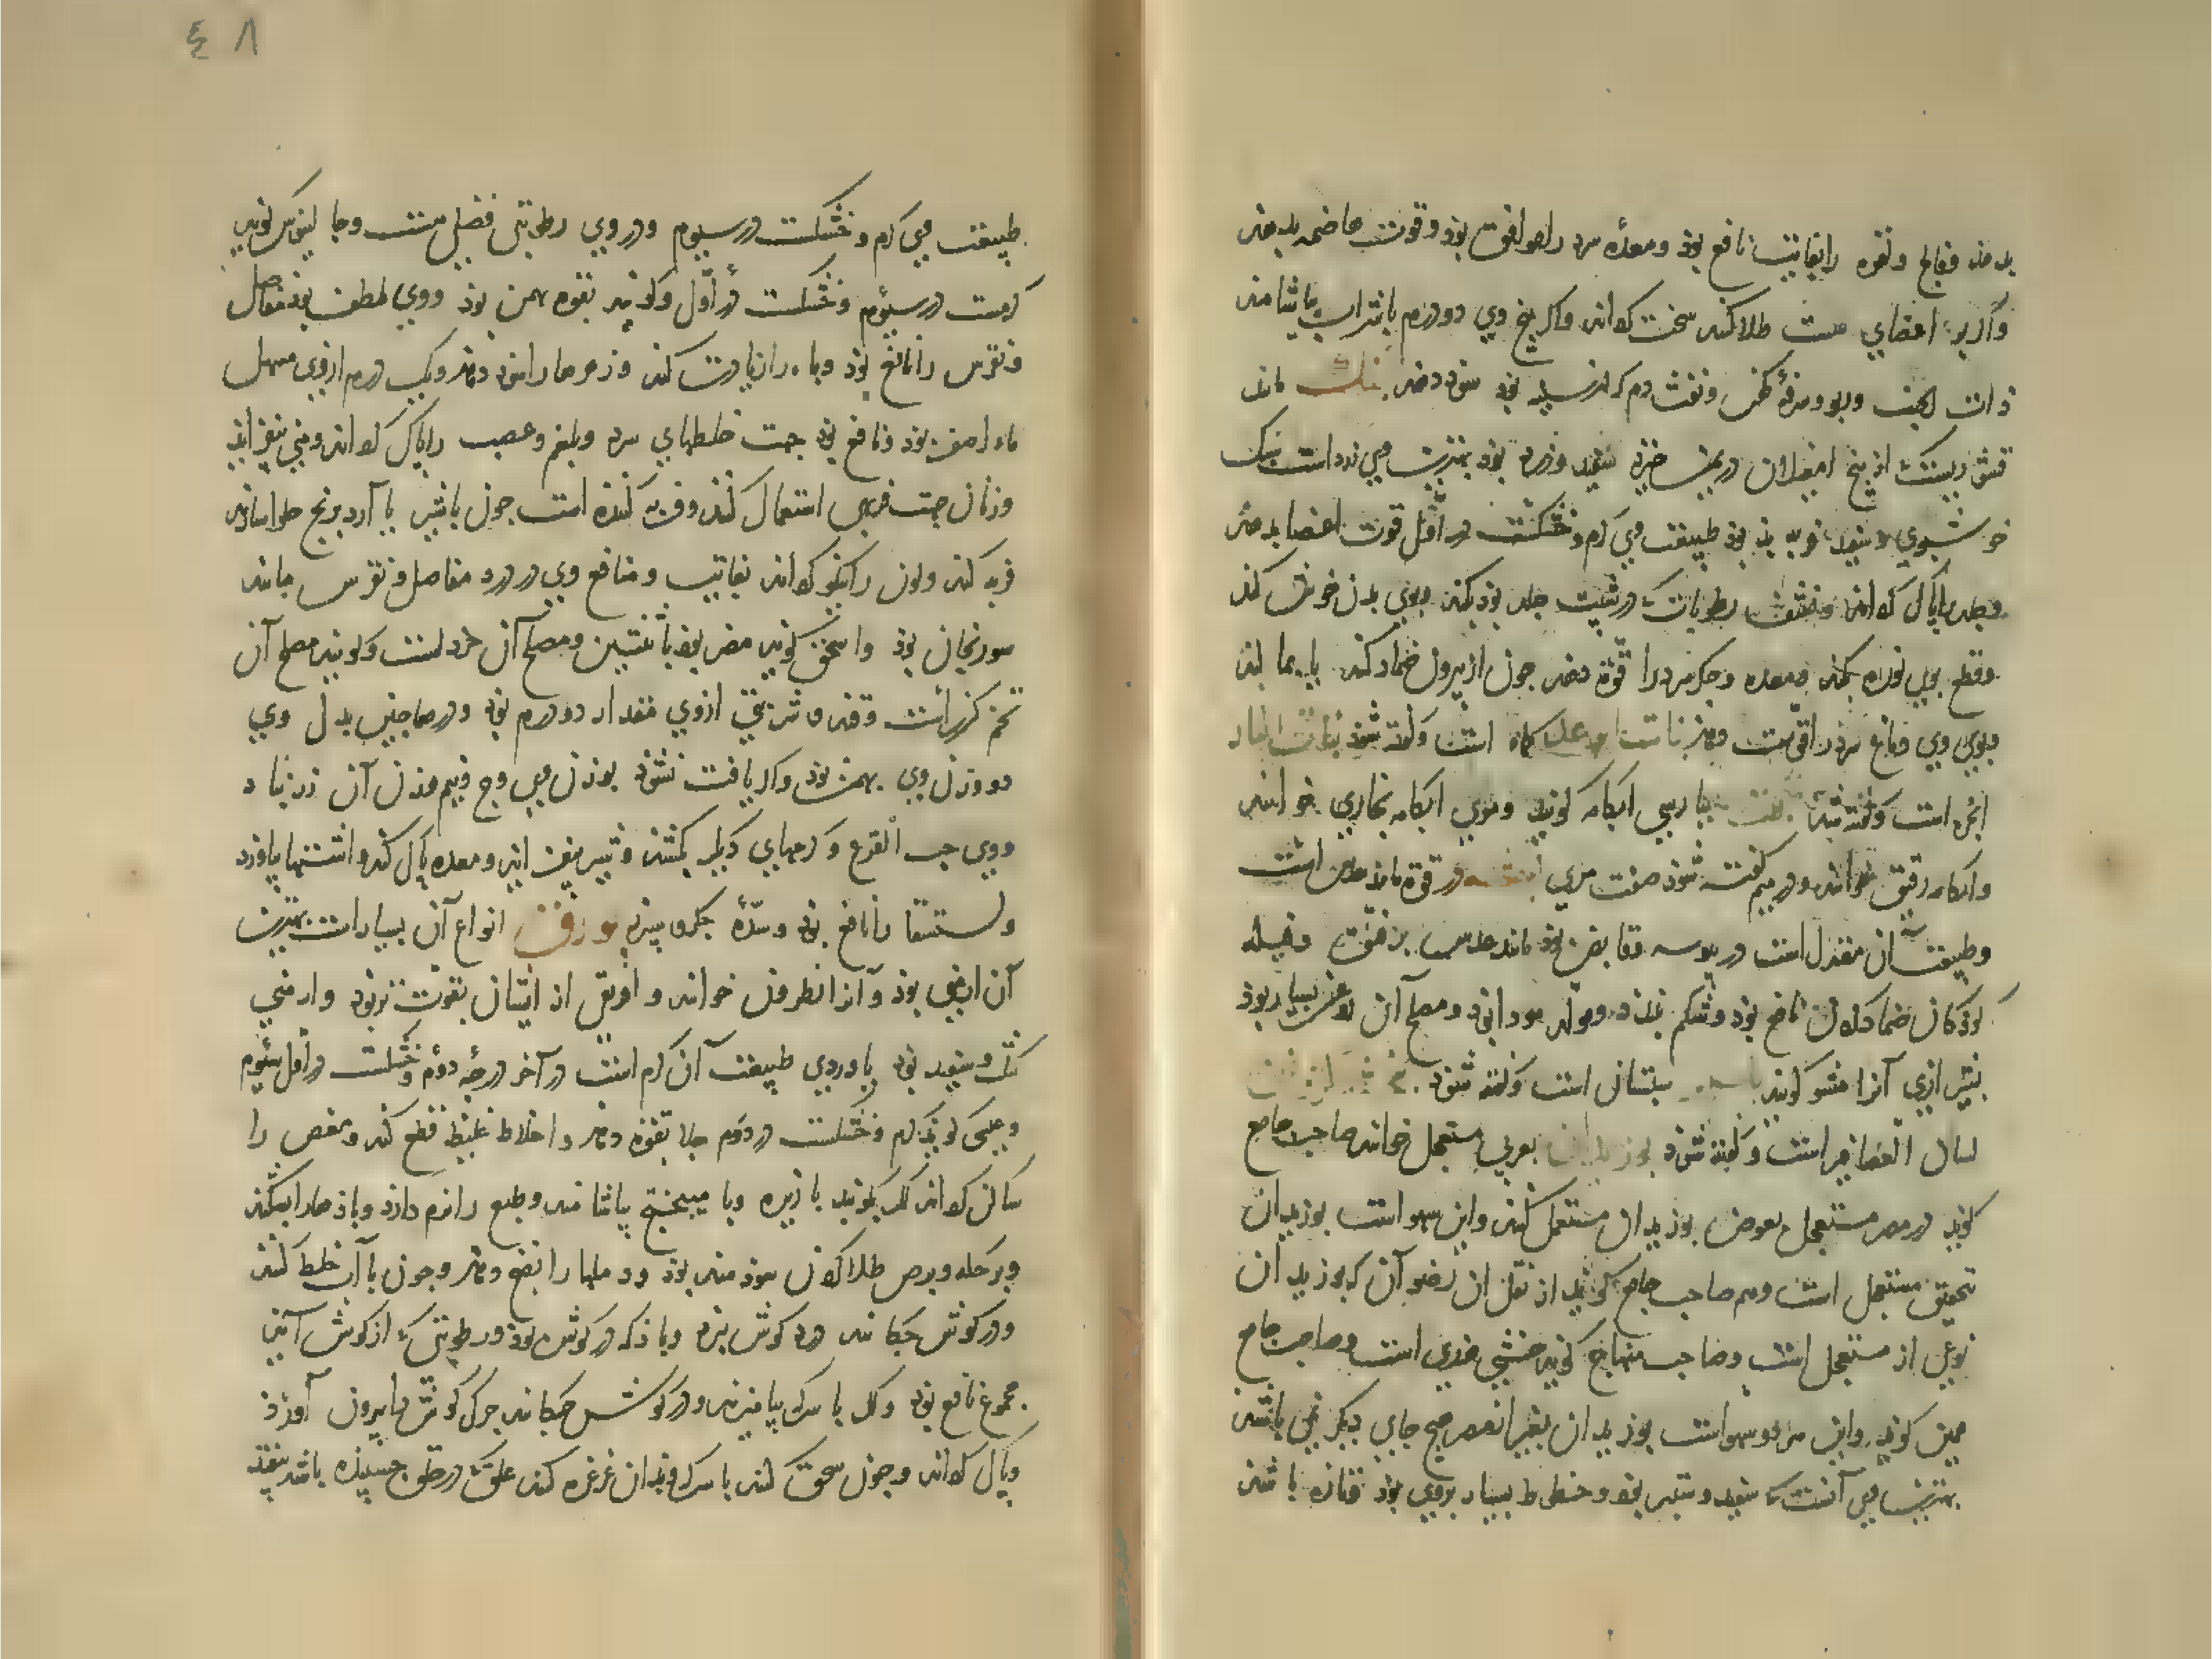 بدهند فالج ولقوه را بغایت نافع بود ومعده سرد را موافق بود وقوت هاضمه بدهد
واگر بر اعضای طلا کنند سخت گرداند واگر بیخ وی دو درم با شراب بیاشامند
ذات الجنب وربو وسرفه کهن ونفث دم که از سینه بود سود دهد بنک مانند
قشوریست از بیخ امغیلان در یمن خیزد سفید وزرد بود بهترین وی زرد است سبک
خوشبوی وسفید بد بود طبیعت وی گرم وخشکست در اول قوت اعضا بدهد
وجلد را پاک گرداند ونشف رطوبات که در پشت جلد بود بکند وبوی بدن خوش کند
وقطع بوی نوره بکند ومعده وجگر سرد را قوت دهد چون از بیرون ضماد کنند یا بیاشامند
وبوی وی دماغ سرد را قوت دهد کاه است وگفته شود بنات النار
انجره است وگفته شد بپارسی ابکامه گویند ومری ابکامه بخاری خوانند
وابکامه رقیق خوانند ودر میم گفته شود صفت مری در قوت مانند عدس است
وطبیعت آن معتدل است در یبوسه وقابض بود مانند عدس
کودکان ضماد کردن نافع بود وشکم ببندد ومولد سودا بود ومصلح آن روغن بسیار بود
بشیرازی آنرا مشو گویند بستانی است وگفته شود
لسان العصافیر است وگفته شود بوزیدان بعربی مستعجل خوانند صاحب جامع
گوید در مصر مستعجل بعوض بوزیدان مستعمل کنند واین سهو است بوزیدان
تحقیق مستعجل است وهم صاحب جامع گوید از نقل ابن رضوان که بوزیدان
نوعی از مستعجل است وصاحب منهاج گوید خشبی هندی است وصاحب جامع
همین گوید واین هر دو سهو است بوزیدان بغیر از مصر هیچ جای دیگر نمی باشد
بهترین وی آنست که سفید وسطبر بود وخطوط بسیار بروی بود وتازه باشد
٤٨
طبیعت وی گرم وخشکست در سیوم ودر وی رطوبتی فضلی هست وجالینوس گوید
گرمست در سیوم وخشکست در اول وگویند بقوه بهمن بود ووی ملطف بود مفاصل
ونقرس را نافع بود وباه را زیادت کند وزهرها را سود دهد ویک درم از وی مسهل
ماء اصفر بود ونافع بود جهت خلطهای سرد وبلغم وعصب را پاک گرداند ومنی بیفزاید
وزنان جهت فربهی استعمال کنند وفربه کننده است چون با شیر با آرد برنج حلوا سازند
فربه کند ولون را نیکو گرداند بغایت ومنافع وی در درد مفاصل ونقرس مانند
سورنجان بود واسحق گوید مضر بود بانثیین ومصلح آن خردلست وگویند مصلح آن
تخم گزر است وقند وشربتی از وی مقدار دو درم بود ودر معاجین بدل وی
دو وزن وی بهمن بود واگر یافت نشود بوزن وی وج ونیم وزن آن زرنباد
ووی حب القرع وکرمهای دیگر بکشد وتبریفت اند ومعده پاک کند واشتها بیاورد
واستسقا را نافع بود وسده جگر وسپرز بورق انواع آن بسیار است بهترین
آن ارمنی بود وآنرا نطرون خوانند واوفق از ایشان بقوت تر بود وارمنی
تنک وسفید بود یا وردی طبیعت آن گرم است در آخر درجه دوم وخشکست در اول سیوم
وعیسی گوید گرم وخشکست در دوم جلا بقوه دهد واخلاط غلیظ قطع کند ومغص را
ساکن گرداند گر بکوبند با زیره وبا میبختج بیاشامند وطبع را نرم دارد وبادها را بشکند
وبر حکه وبرص طلا کردن سودمند بود ودملها را نضج دهد وچون با آب خلط کنند
ودر گوش چکانند درد گوش ببرد وباد که در گوش بود ورطوبتی که از گوش آید
مجموع نافع بود وگر با سرکه بیامیزند ودر گوش چکانند چرک گوش را بیرون آورد
وپاک گرداند وچون سحق کنند با سرکه وبدان غرغره کنند علق که در حلق چسبیده باشد بیفتد